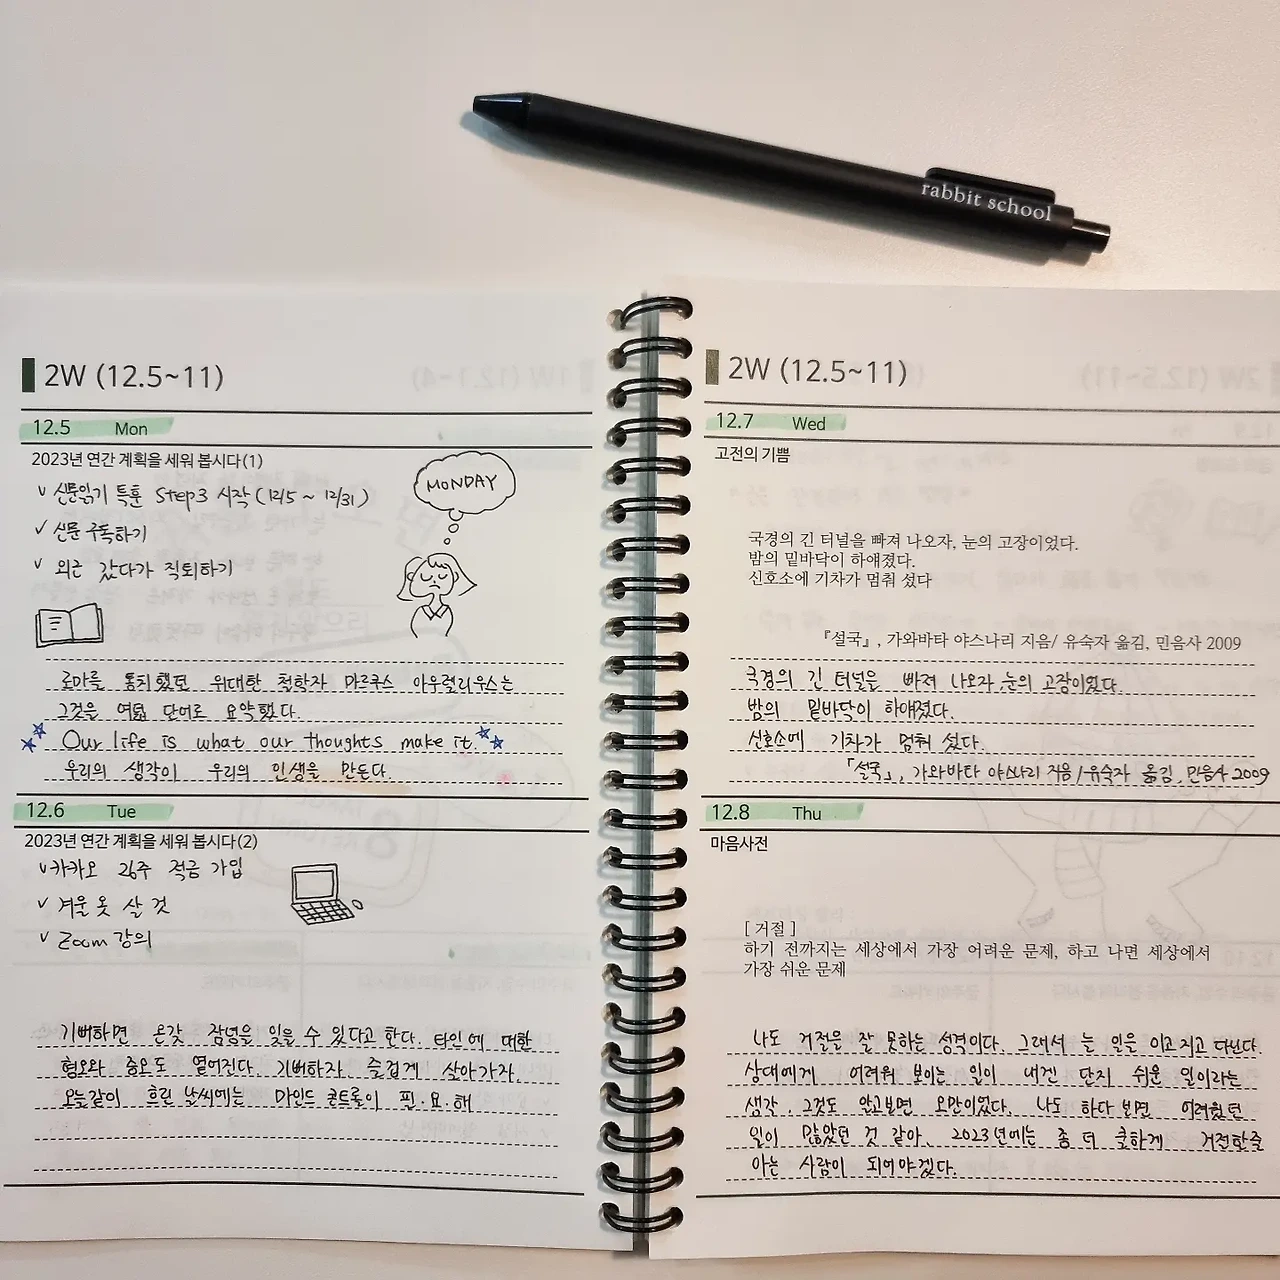 rabbit school
2W (12.5~11)
12.5 Mon
2023년 연간 계획을 세워 봅시다(1)
✓ 신문읽기 특훈 Step3 시작 (12/5 ~ 12/31)
✓ 신문 구독하기
✓ 외근 갔다가 직퇴하기
MONDAY
로마를 통치했던 위대한 철학자 마르쿠스 아우렐리우스는
그것을 여덟 단어로 요약했다.
Our life is what our thoughts make it.
우리의 생각이 우리의 인생을 만든다.
12.6 Tue
2023년 연간 계획을 세워 봅시다(2)
✓ 카카오 26주 적금 가입
✓ 겨울 옷 살 것
✓ Zoom 강의
기버하면 온갖 잡념을 잊을 수 있다고 한다. 타인에 대한
혐오와 증오도 옅어진다. 기버하자. 즐겁게 살아가자.
오늘같이 흐린 날씨에는 마인드 콘트롤이 필.요.해
2W (12.5~11)
12.7 Wed
고전의 기쁨
국경의 긴 터널을 빠져 나오자, 눈의 고장이었다.
밤의 밑바닥이 하얘졌다.
신호소에 기차가 멈춰 섰다
『설국』, 가와바타 야스나리 지음/ 유숙자 옮김, 민음사 2009
국경의 긴 터널을 빠져 나오자, 눈의 고장이었다.
밤의 밑바닥이 하얘졌다.
신호소에 기차가 멈춰 섰다.
『설국』, 가와바타 야스나리 지음/유숙자 옮김, 민음사 2009
12.8 Thu
마음사전
[ 거절 ]
하기 전까지는 세상에서 가장 어려운 문제, 하고 나면 세상에서
가장 쉬운 문제
나도 거절을 잘 못하는 성격이다. 그래서 늘 일을 이고 지고 다닌다.
상대에게 어려워 보이는 일이 내겐 단지 쉬운 일이라는
생각. 그것도 알고보면 오만이었다. 나도 하다 보면 어려웠던
일이 많았던 것 같아. 2023년에는 좀 더 쿨하게 거절할줄
아는 사람이 되어야겠다.